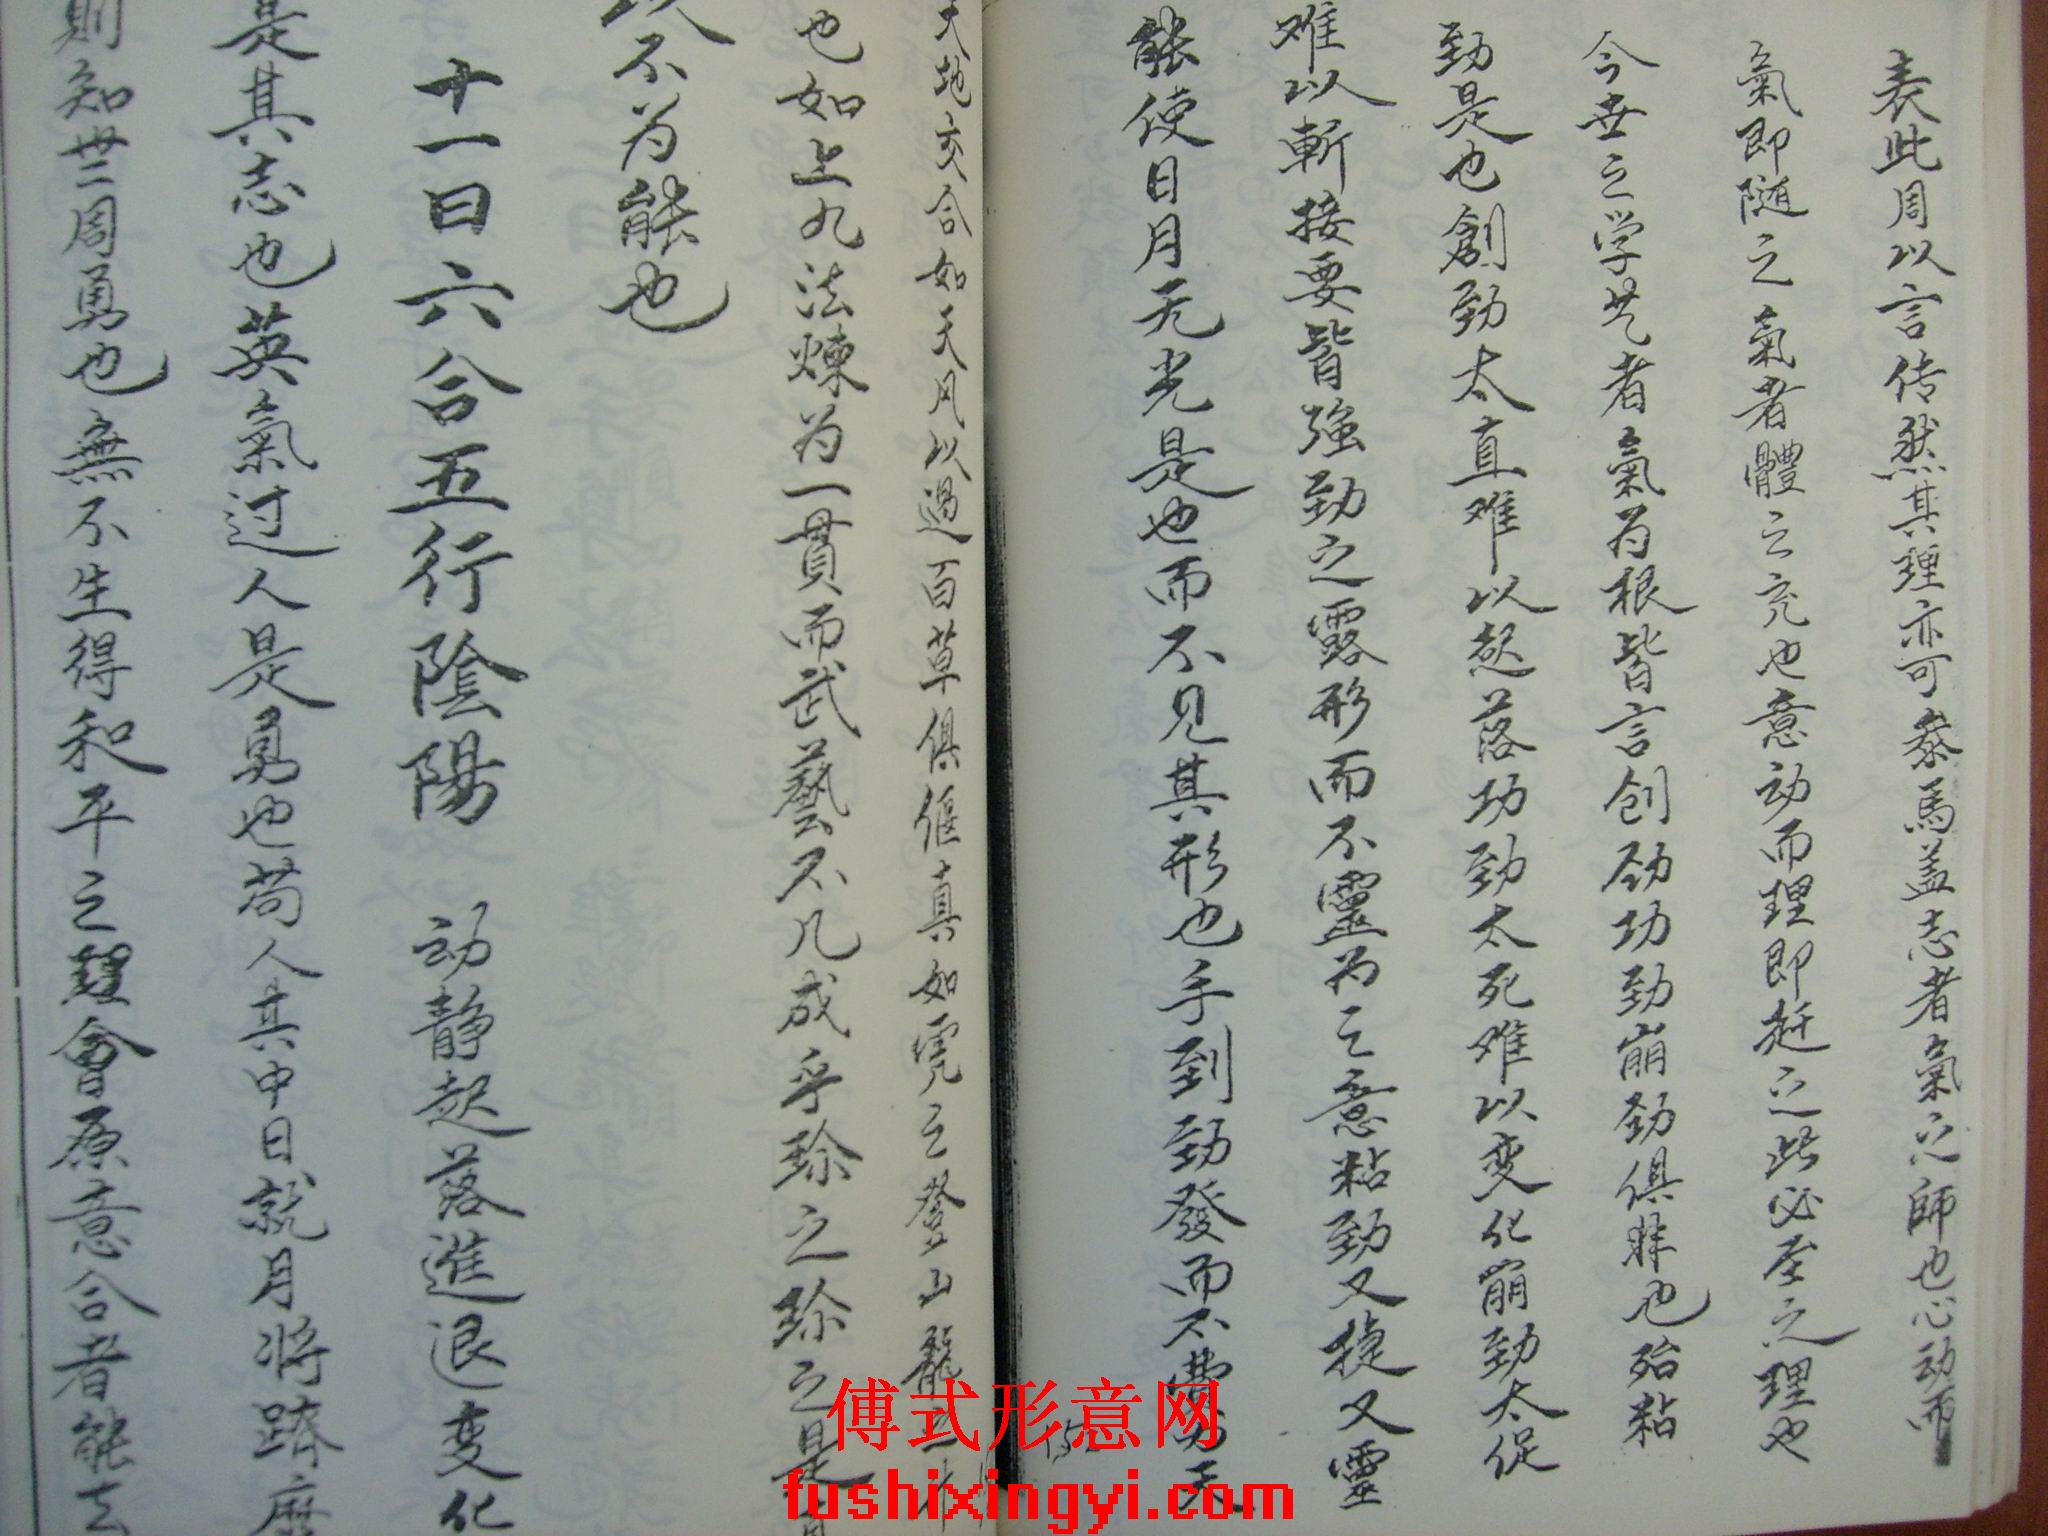 表此周以言传然其理亦可参焉盖志者氣之師也心动而
氣即随之氣者體之充也意动而理即赶之此必至之理也
今世之学艺者氣为根皆言创劲功劲崩劲俱非也殆粘
劲是也創劲太直难以起落功劲太死难以变化崩劲太促
难以斬接要皆強劲之露形而不靈为之意粘劲又捷又靈
能使日月无光是也而不见其形也手到劲發而不費力天
天地交合如天风以過百草俱偃真如虎之登山龍之
也如上九法煉为一貫而武藝不几成乎珎之珎之是
不为能也
十一曰六合五行陰陽 动静起落進退变化
是其志也英氣过人是勇也苟人其中日就月将
則知 周勇也無不生得和平之 會原意合者能去
傅式形意网
fushixingyi.com